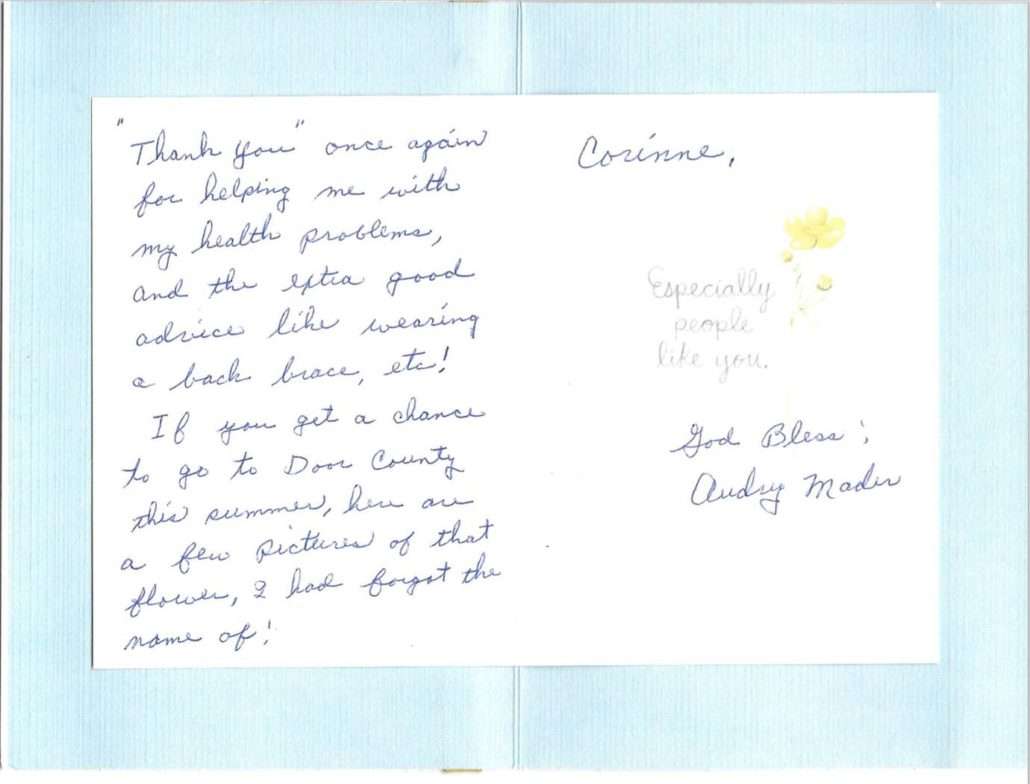 "Thank you" once again
for helping me with
my health problems,
and the extra good
advice like wearing
a back brace, etc!
If you get a chance
to go to Door County
this summer, here are
a few pictures of that
flower, I had forgot the
name of!
Corinne,
Especially
people
like you.
God Bless!
Audry Mader